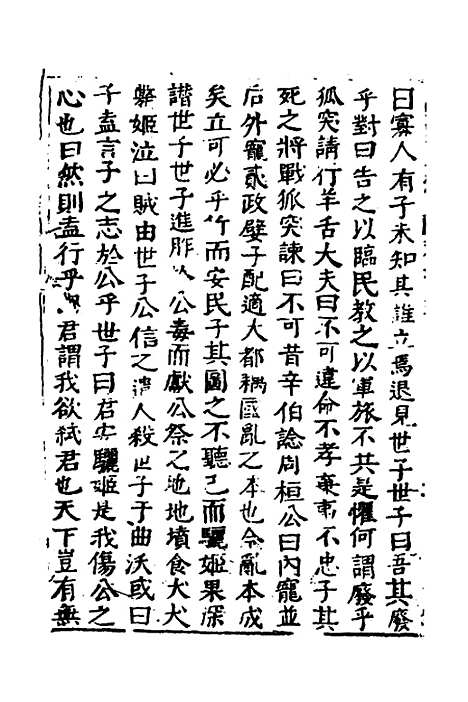 曰寡人有子未知其誰立焉退見世子世子曰吾其廢
乎對曰告之以臨民教之以軍旅不共是懼何謂廢乎
狐突請行羊舌大夫曰不可違命不孝棄事不忠子其
死之將戰狐突諫曰不可昔辛伯諗周桓公曰內寵並
后外寵貳政嬖子配適大都耦國亂之本也今亂本成
矣立可必乎 而安民子其圖之不聽已而驪姬果深
譖世子世子進胙 公毒而獻公祭之地地墳食犬犬
斃姬泣曰賊由世子公信之 人殺世子于曲沃或曰
子盍言子之志於公乎世子曰君安驪姬是我傷公之
心也曰然則盍行乎 君謂我欲弒君也天下豈有無